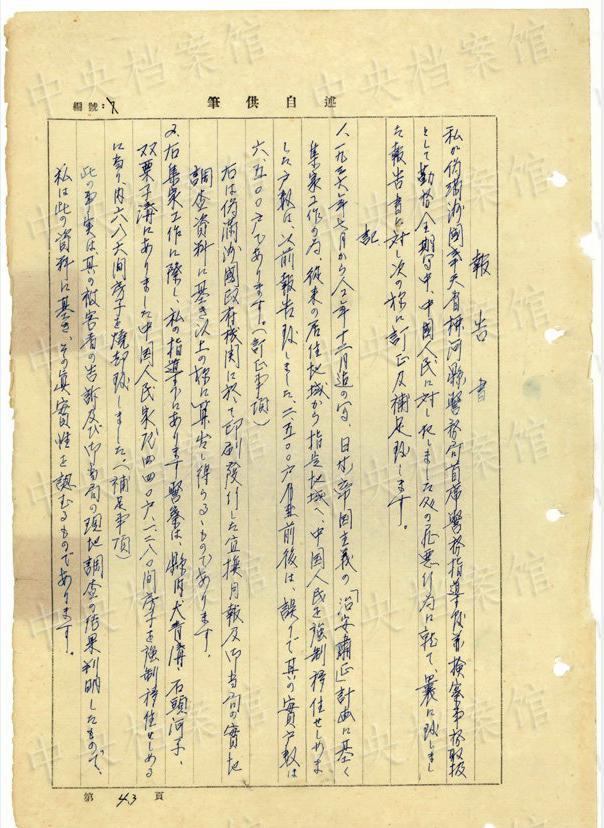 編號：7
述自供筆
報告書
私が偽満洲國奉天省柳河縣警務局首席警務指導官及兼検察事務取扱
として勤務全期間中、中国人民に対し犯しました処の罪悪行為に就て、曩に致しまし
た報告書に対し次の様に訂正及補足致します。
記
1、一九三六年七月から 十二月迄の間、日本帝国主義の「治安粛正」計画に基く
集家工作の為、従来の居住地域から指定地域へ、中国人民を強制移住せしめま
した戸数は、以前報告致しました、二五〇〇戸 前後は、誤りで其の實戸数は
六、五〇〇戸であります。（訂正事項）
右は偽満洲國政府機関に於て印刷發行した宣撫月報及 当局の實地
調査資料に基き以上の様に算出し得らるゝものであります。
2、右集家工作に際し、私の指導下にあります警察は、縣内大青溝、石頭河子、
双栗子溝にありました中国人民家屋四四〇戸、一二八〇間房子を強制移住せしめる
に当り内六八〇間房子を焼却致しました。（補足事項）
此の事実は、其の被害者の告訴及 当局の現地調査の結果判明したもので、
私は此の資料に基き、その真實性を認むるものであります。
第 43 頁
中央档案馆